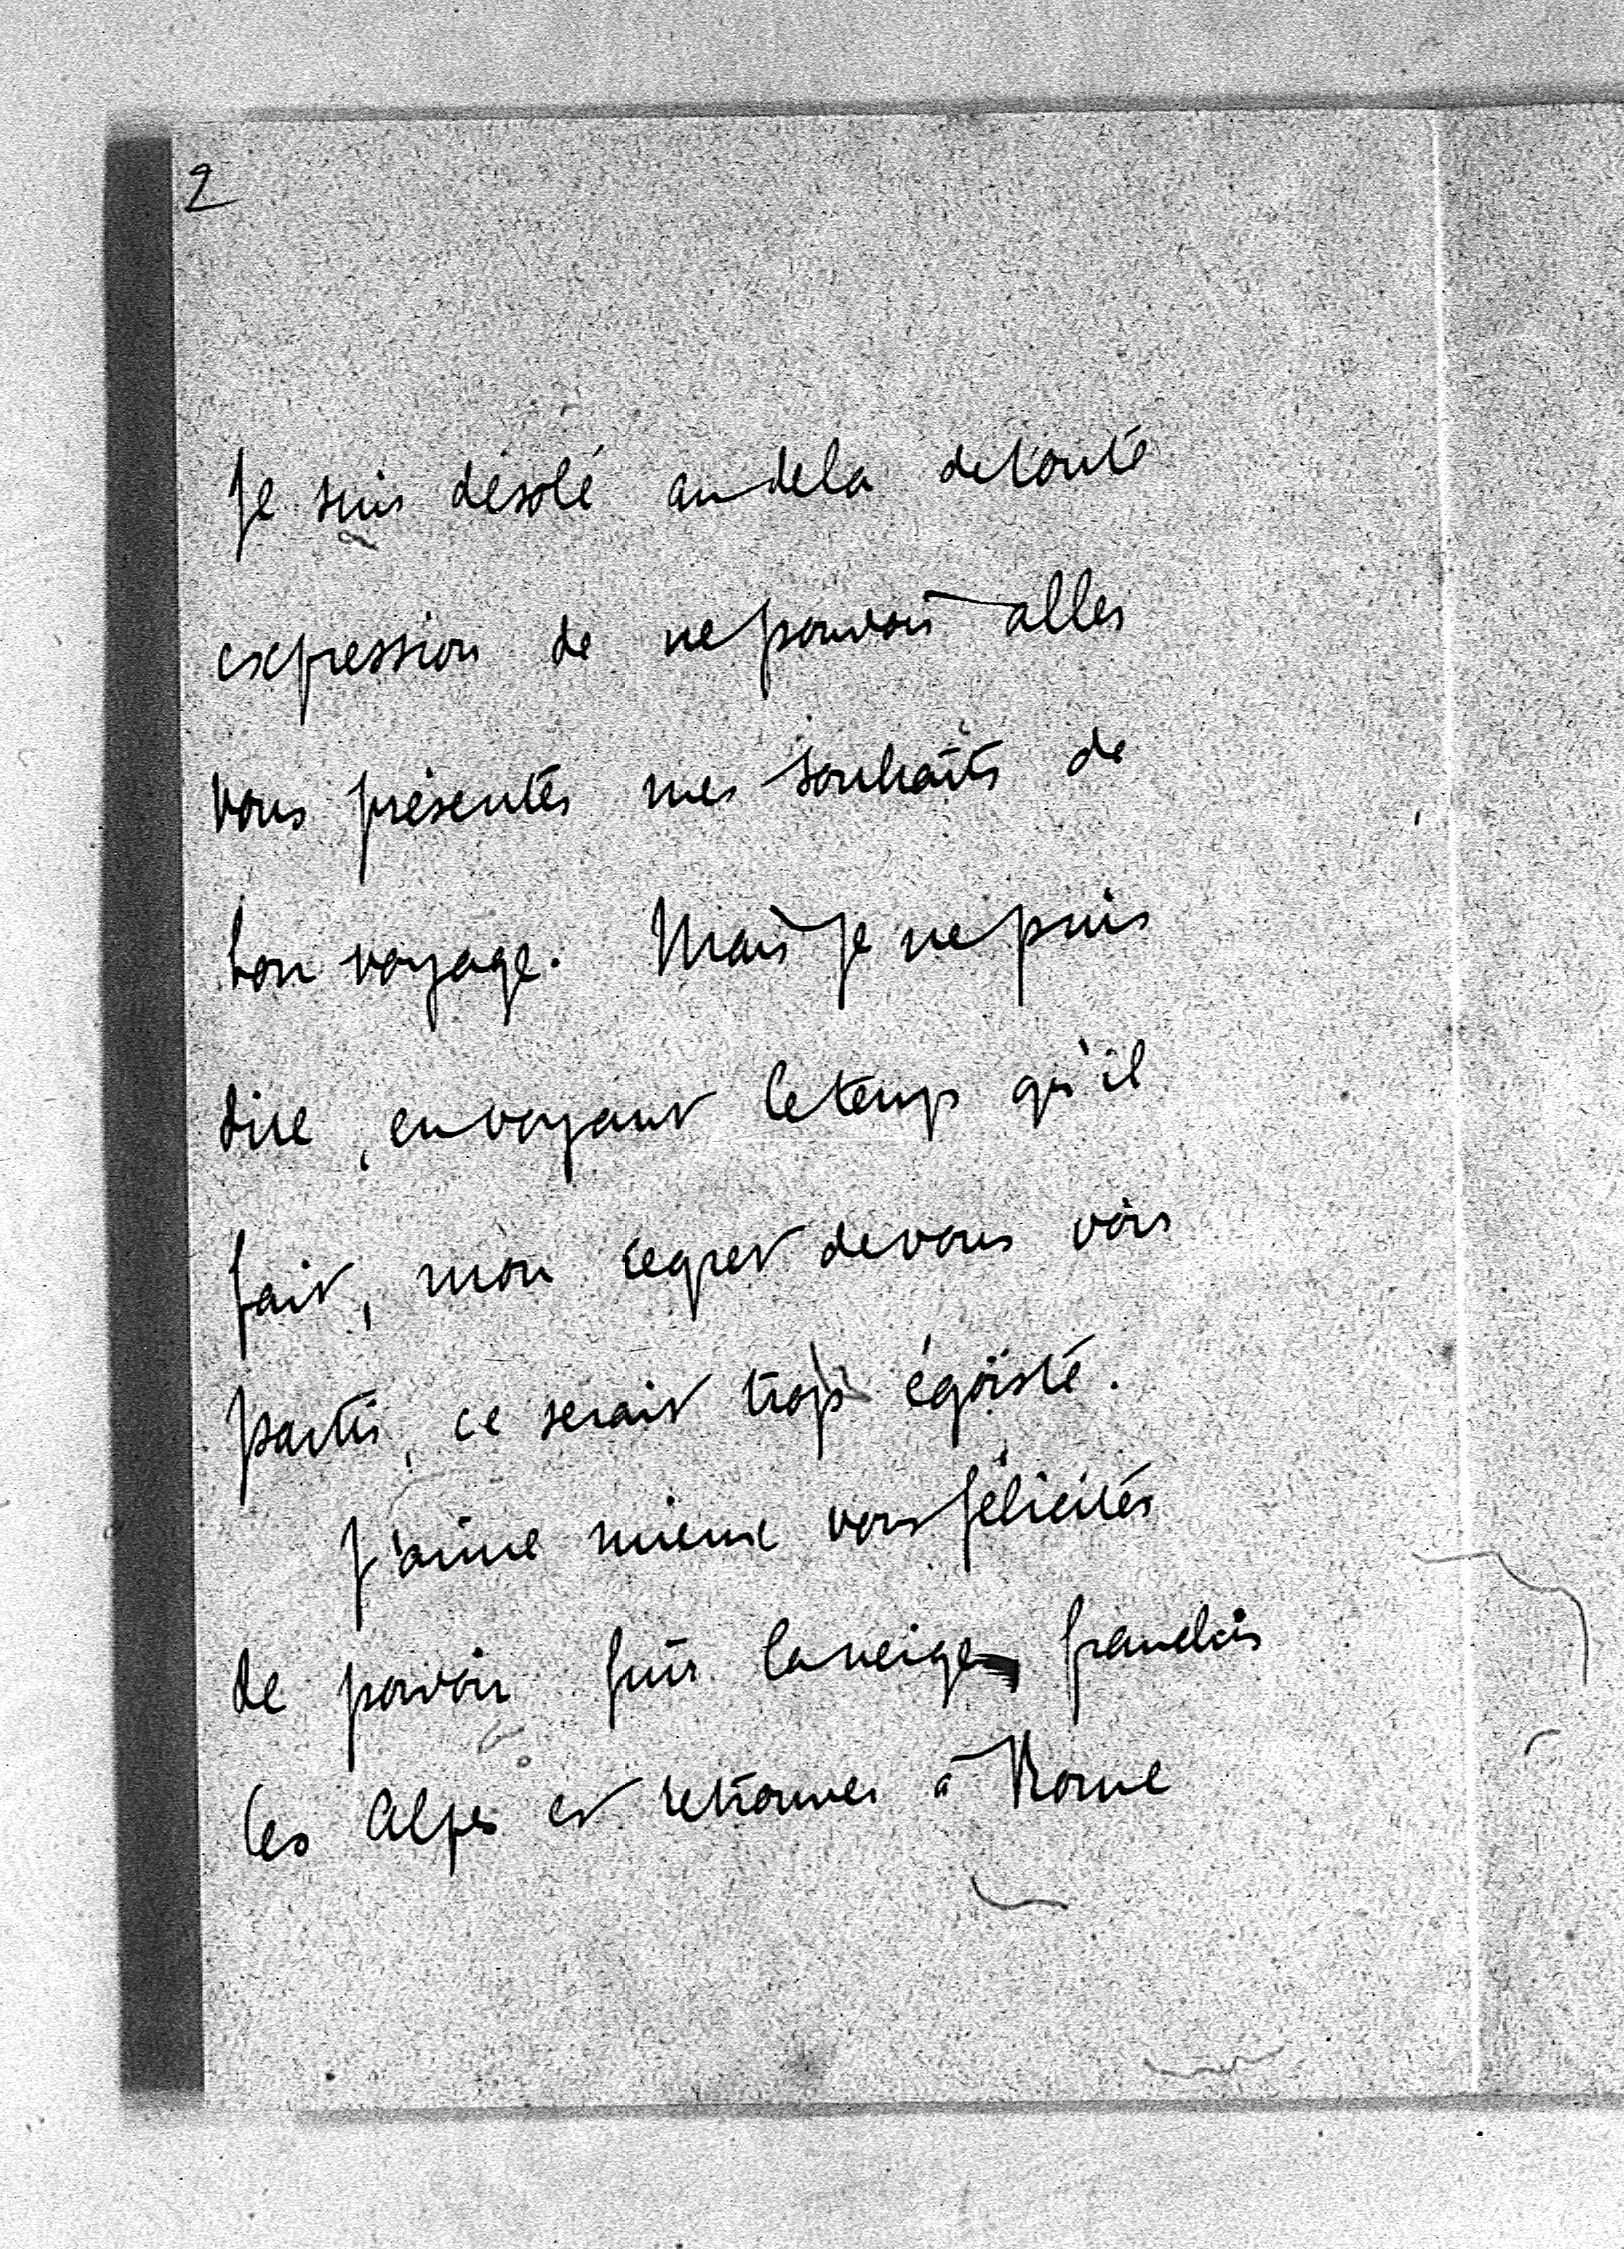 2
Je suis désolé au dela de toute
expression de ne pouvoir aller
vous présenter mes souhaits de
bon voyage. Mais je ne puis
dire, en voyant le temps qu'il
fait, mon regret de vous voir
partir, ce serait trop égoïste.
J'aime mieux vous féliciter
de pouvoir fuir la neige, franchir
les Alpes et retrouver à Rome